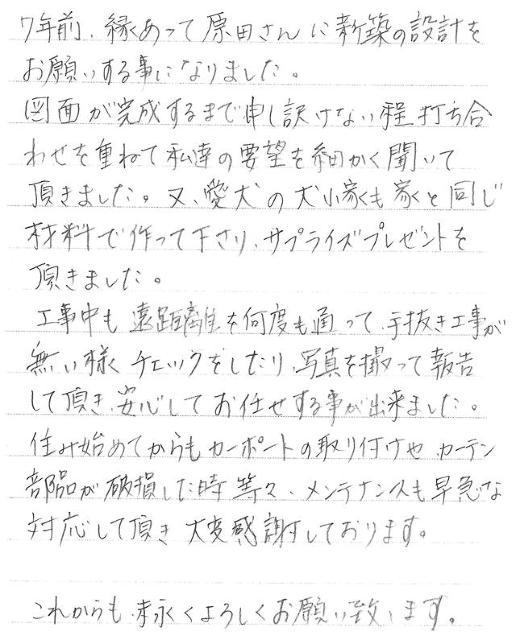 7年前、縁あって原田さんに新築の設計を
お願いする事になりました。
図面が完成するまで申し訳けない程打ち合
わせを重ねて私達の要望を細かく聞いて
頂きました。又、愛犬の犬小家も家と同じ
材料で作って下さり、サプライズプレゼントを
頂きました。
工事中も遠距離を何度も通って、手抜き工事が
無い様チェックをしたり、写真を撮って報告
して頂き、安心してお任せする事が出来ました。
住み始めてからもカーポートの取り付けや、カーテン
部品が破損した時等々、メンテナンスも早急な
対応して頂き大変感謝しております。
これからも末永くよろしくお願い致します。